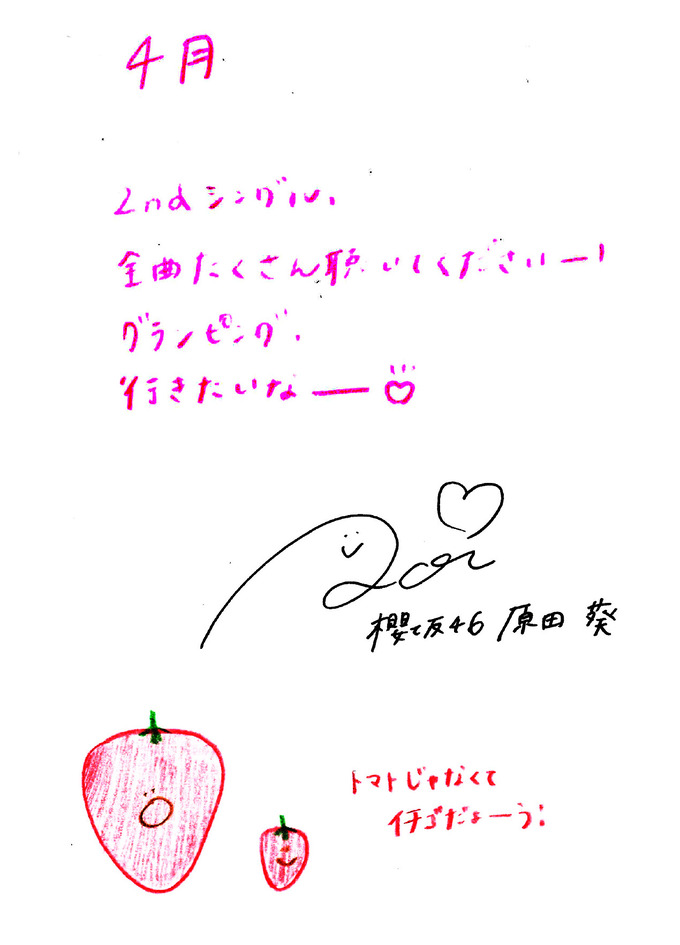 4月
2ndシングル、
全曲たくさん聴いてくださいー!
グランピング、
行きたいなー♡
Aoi♡
櫻坂46 原田 葵
トマトじゃなくて
イチゴだよーう!